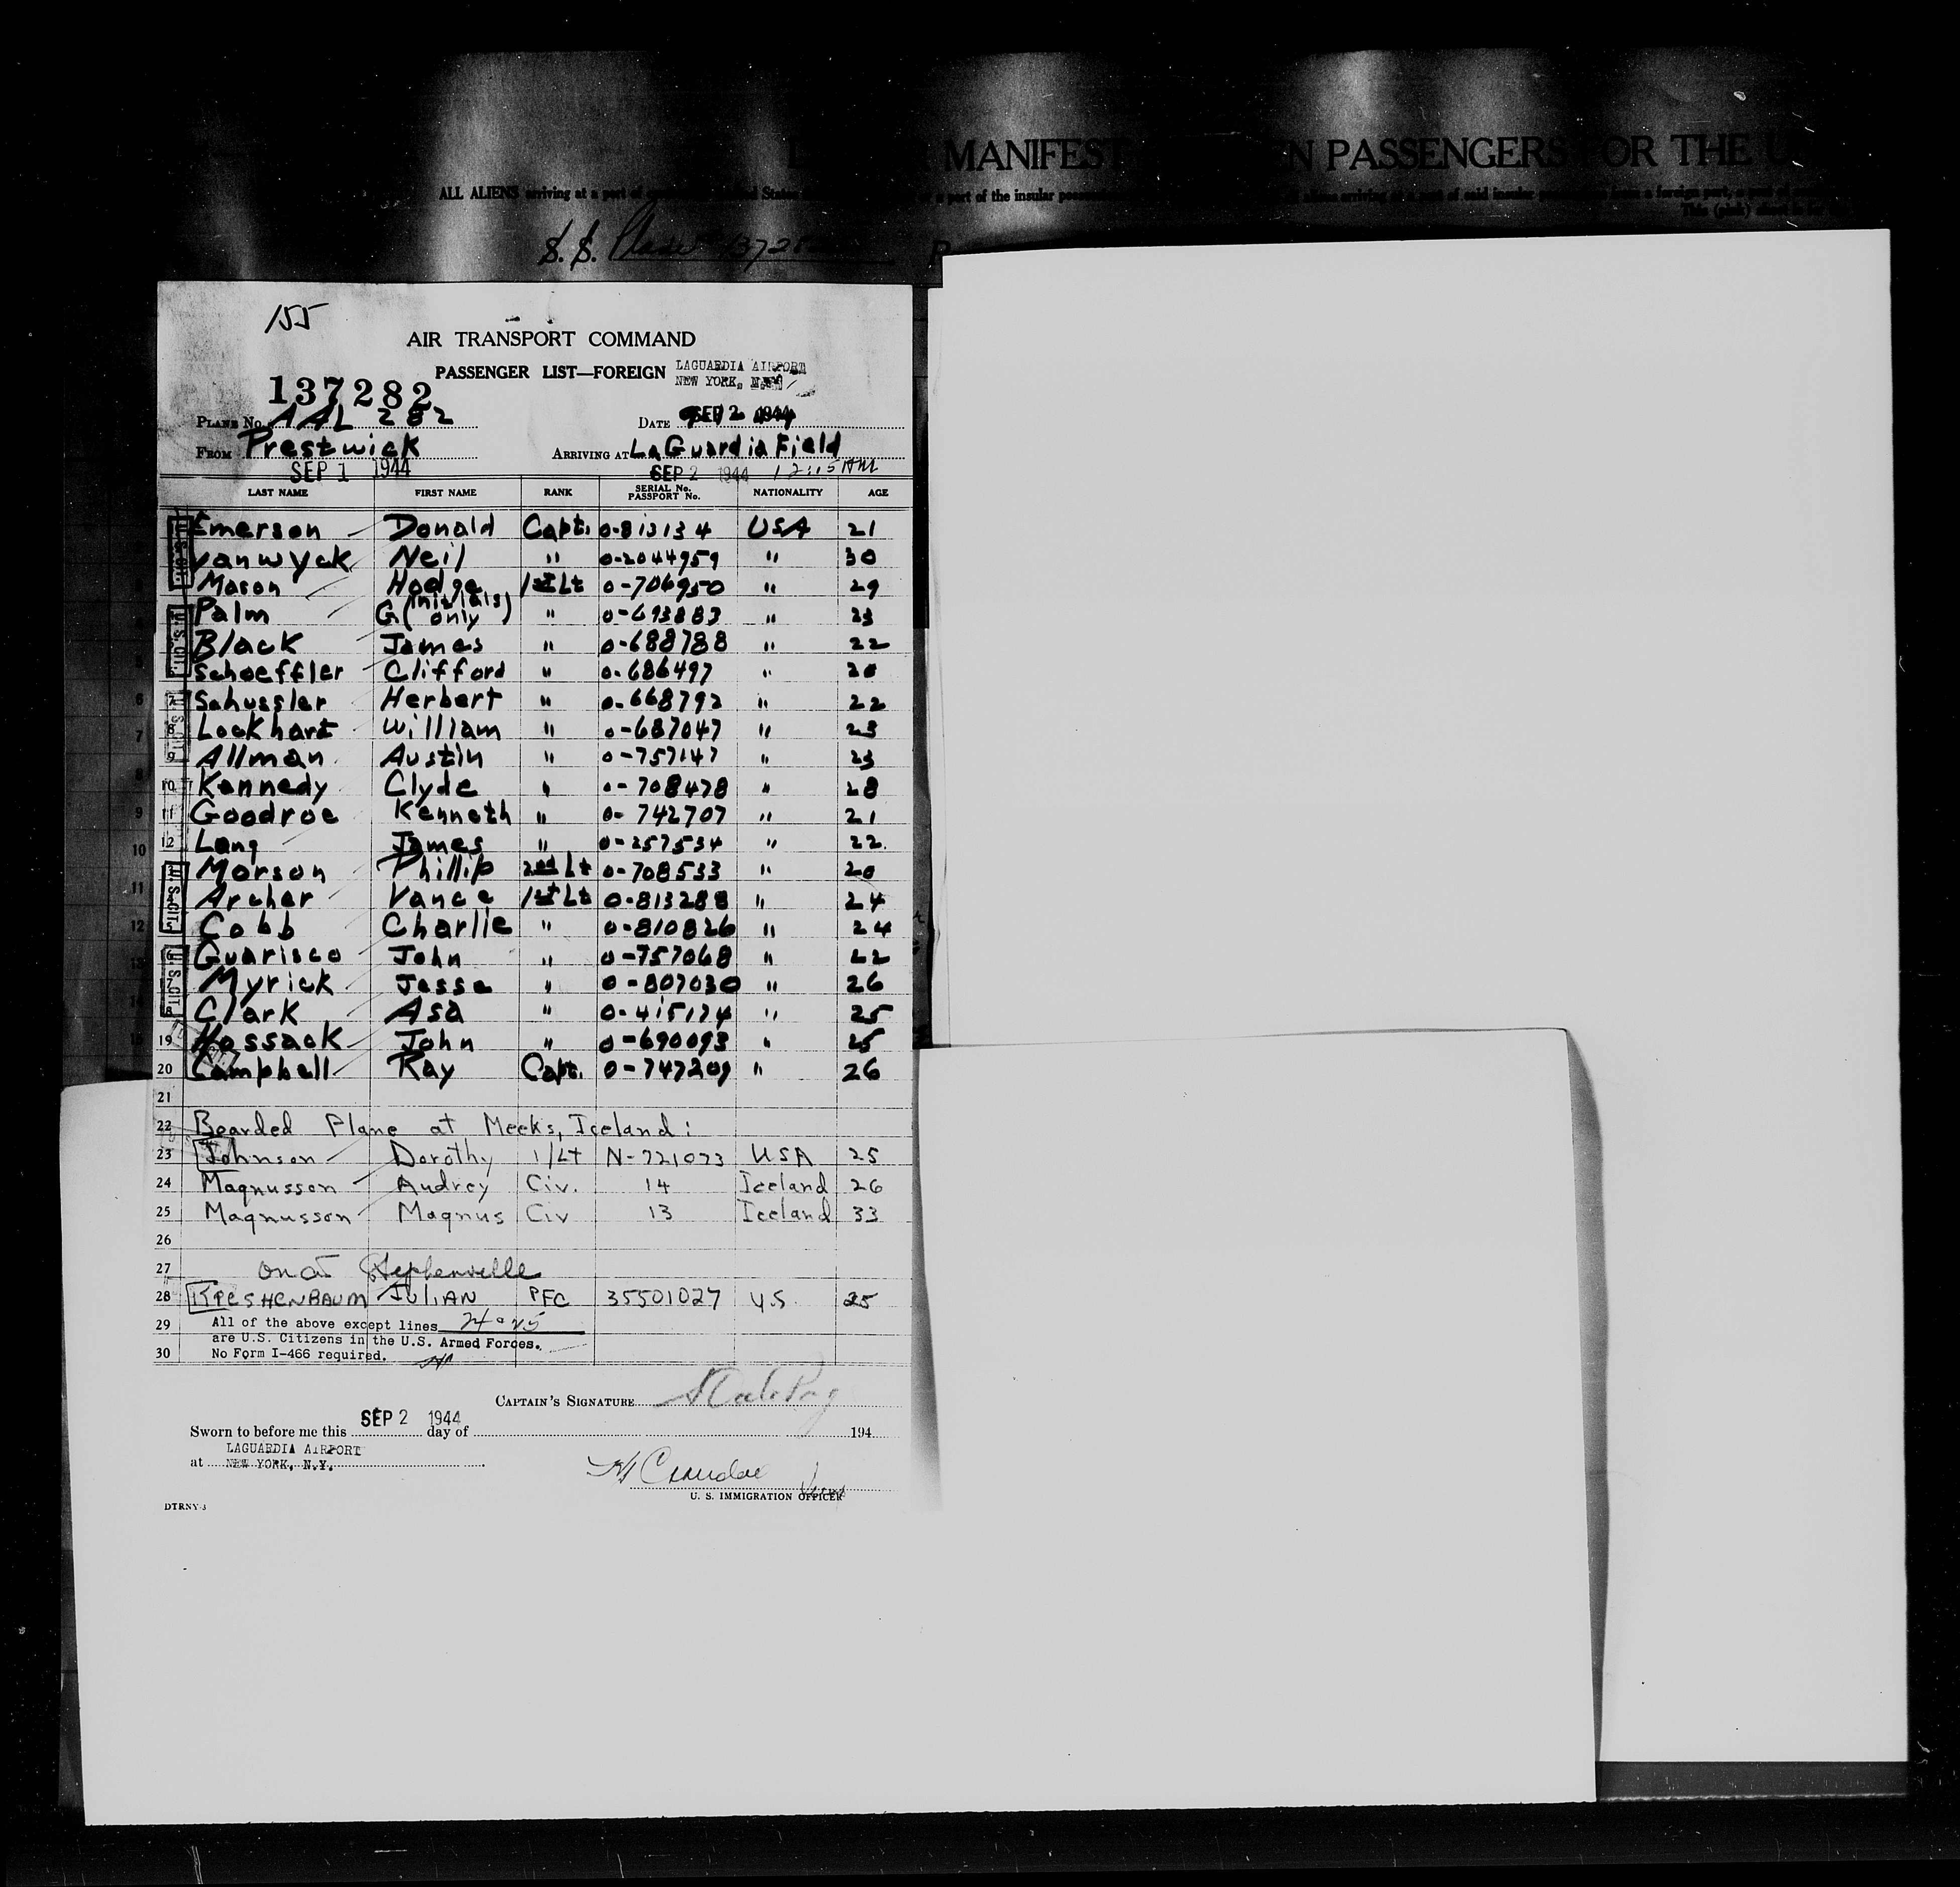 MANIFEST N PASSENGERS FOR THE U
ALL ALIENS arriving at a port of
S. S. 
155
AIR TRANSPORT COMMAND
PASSENGER LIST—FOREIGN LAGUARDIA AIRPORT
NEW YORK, N.Y.
137282
PLANE No. AAL 282 DATE SEP 2 1944
FROM Prestwick ARRIVING AT LaGuardia Field
SEP 1 1944 SEP 2 1944 12:15 AM
LAST NAME FIRST NAME RANK SERIAL No. PASSPORT No. NATIONALITY AGE
Emerson Donald Capt. 0-813134 USA 21
Vanwyck Neil " 0-2044959 " 30
Mason Hodge 1st Lt 0-706950 " 29
Palm G (initials only) " 0-693883 " 23
Black James " 0-688788 " 22
Schoeffler Clifford " 0-686497 " 20
Schussler Herbert " 0-668792 " 22
Lockhart William " 0-687047 " 23
Allman Austin " 0-757147 " 23
10 Kennedy Clyde " 0-708478 " 28
11 Goodroe Kenneth " 0-742707 " 21
12 Long James " 0-257534 " 22
Morson Phillip 2nd Lt 0-708533 " 20
Archer Vance 1st Lt 0-813288 " 24
Cobb Charlie " 0-810826 " 24
Guarisco John " 0-757068 " 22
Myrick Jesse " 0-807030 " 26
Clark Asa " 0-415174 " 25
19 Hossack John " 0-690093 " 25
20 Campbell Ray Capt. 0-747209 " 26
21
22 Boarded Plane at Meeks, Iceland:
23 Johnson Dorothy 1/Lt N-721073 USA 25
24 Magnusson Audrey Civ. 14 Iceland 26
25 Magnusson Magnus Civ 13 Iceland 33
26
27 on at Stephenville
28 KIRSHENBAUM JULIAN PFC 35501027 U.S. 25
29 All of the above except lines 24 & 25
are U.S. Citizens in the U.S. Armed Forces.
30 No Form I-466 required.
CAPTAIN'S SIGNATURE
Sworn to before me this SEP 2 1944 day of 194
LAGUARDIA AIRPORT
at NEW YORK, N.Y.
U. S. IMMIGRATION OFFICER
DTRNY-3